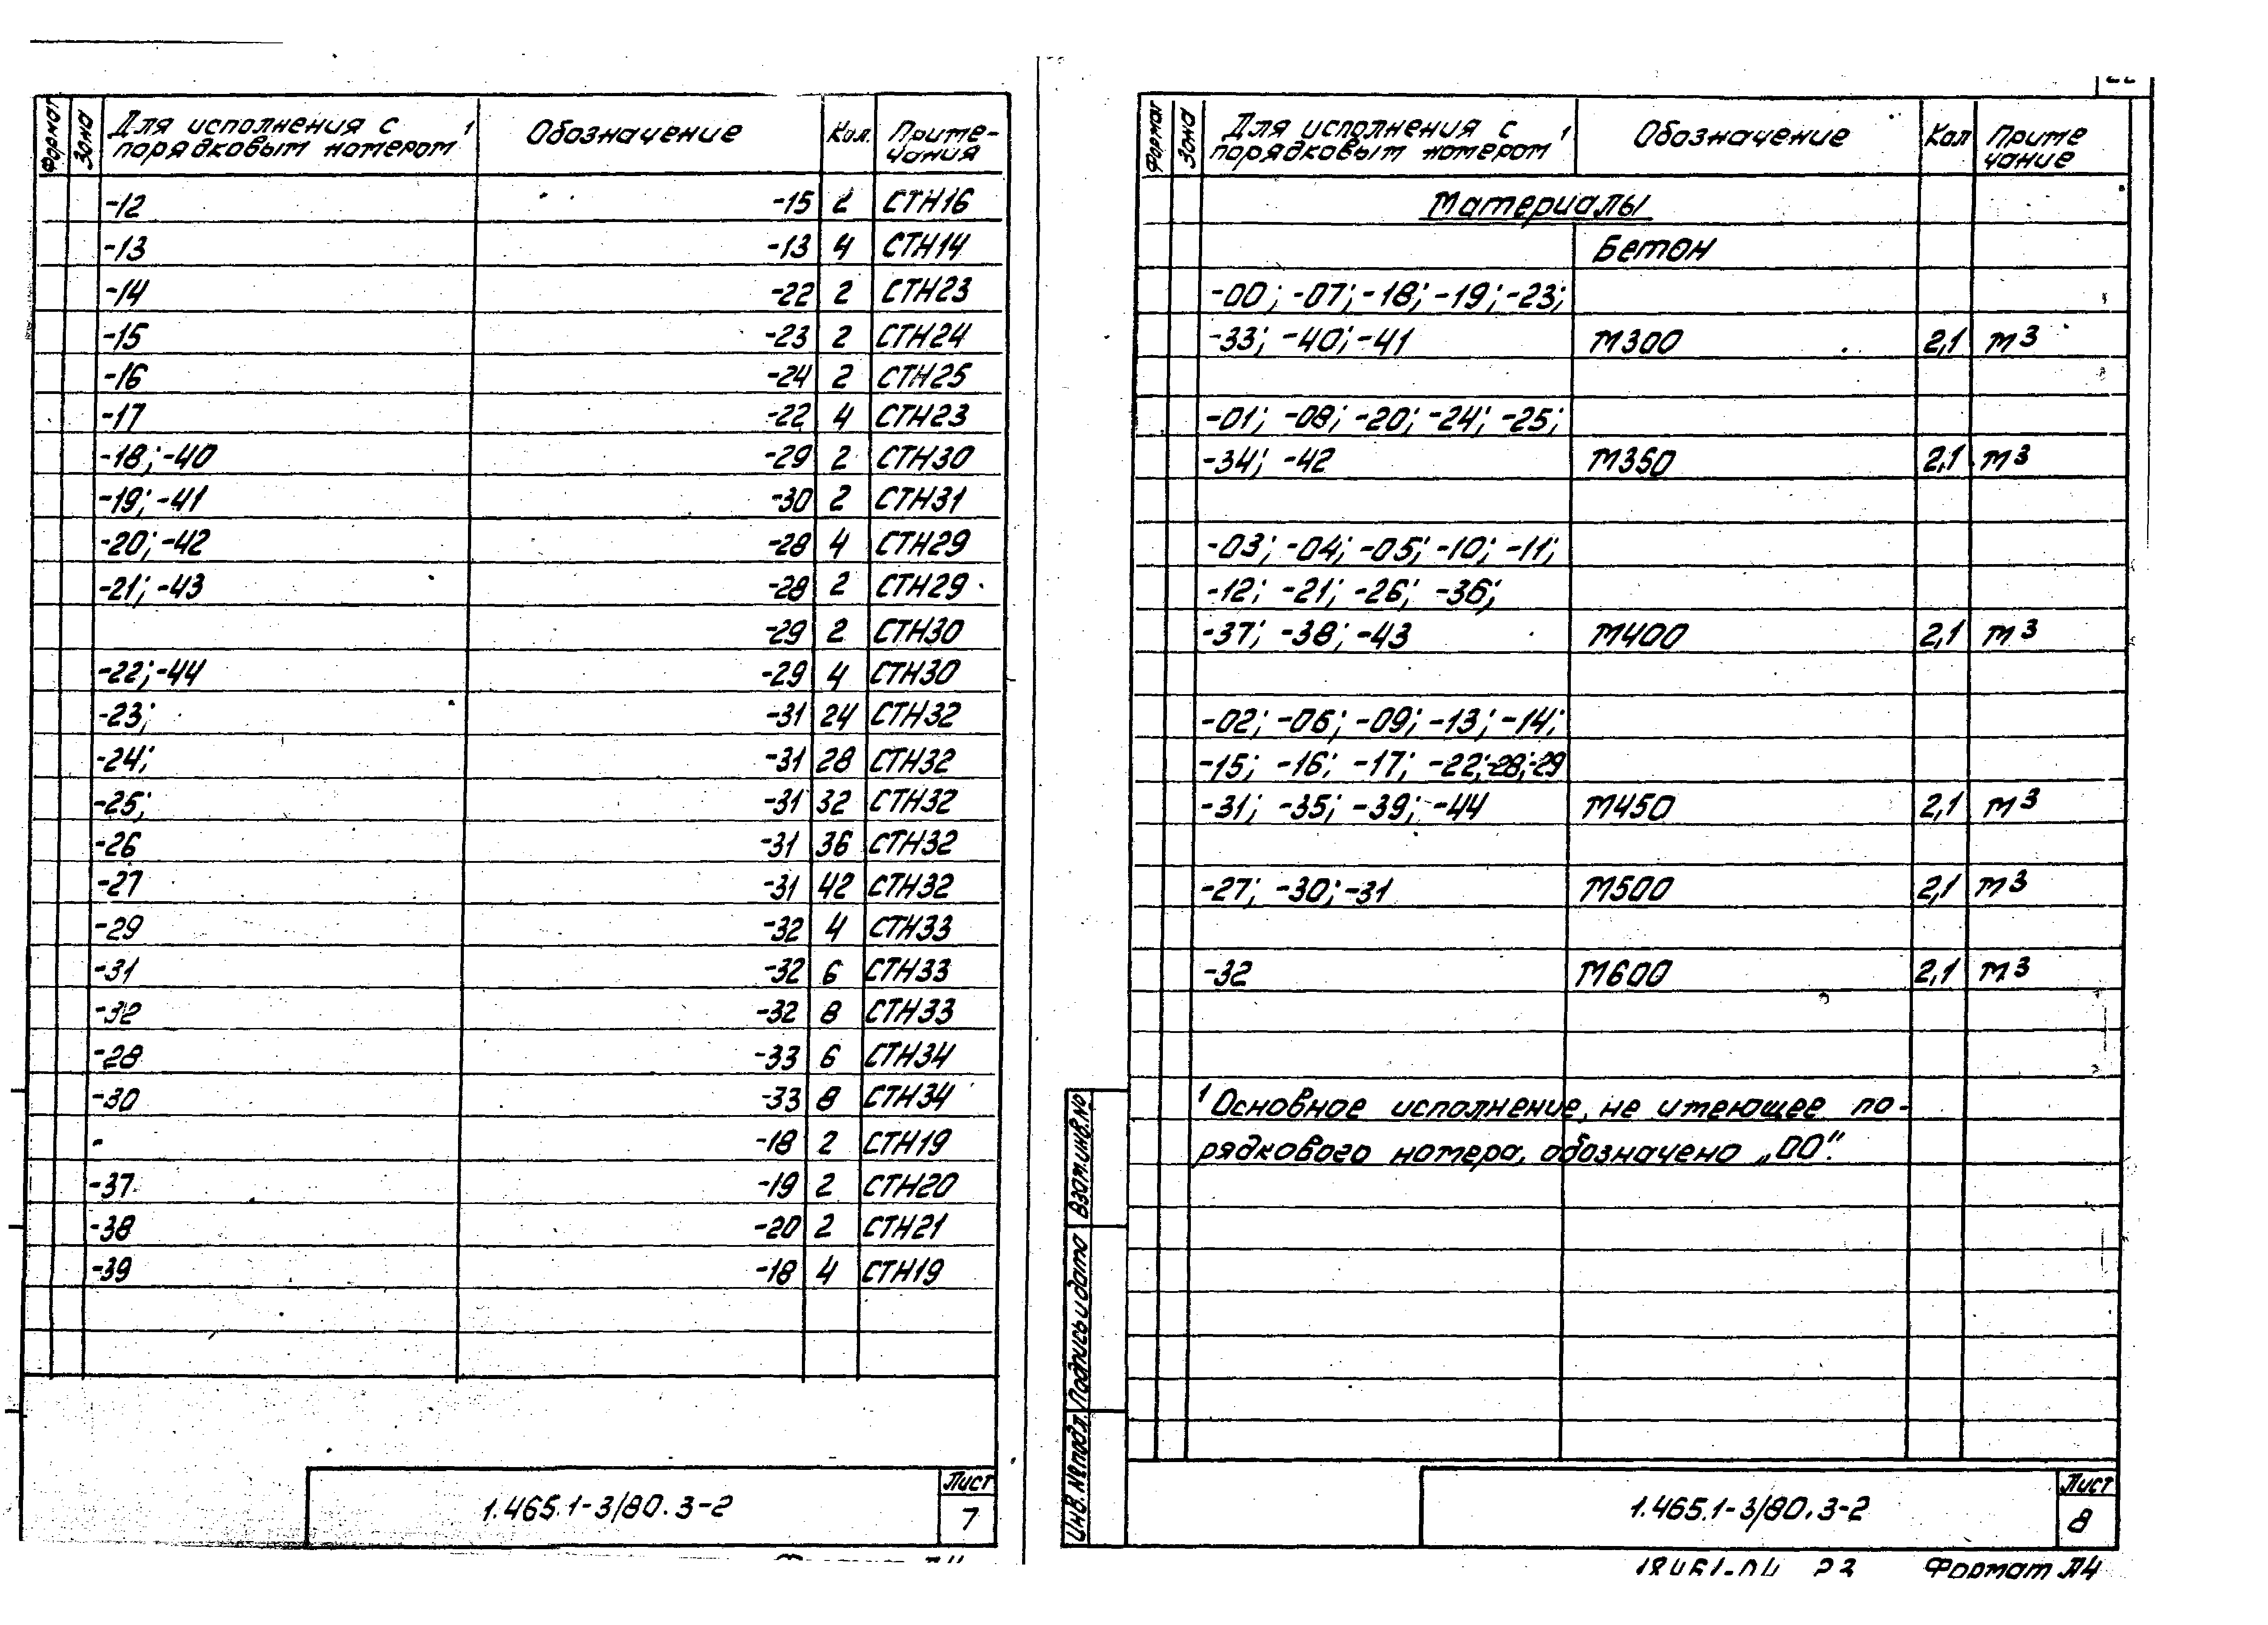 Формат
Зона
Для исполнения с порядковым номером 1
Обозначение
Кол.
Приме-
чания
-12 -15 2 СТН16
-13 -13 4 СТН14
-14 -22 2 СТН23
-15 -23 2 СТН24
-16 -24 2 СТН25
-17 -22 4 СТН23
-18; -40 -29 2 СТН30
-19; -41 -30 2 СТН31
-20; -42 -28 4 СТН29
-21; -43 -28 2 СТН29
-29 2 СТН30
-22; -44 -29 4 СТН30
-23; -31 24 СТН32
-24; -31 28 СТН32
-25; -31 32 СТН32
-26 -31 36 СТН32
-27 -31 42 СТН32
-29 -32 4 СТН33
-31 -32 6 СТН33
-32 -32 8 СТН33
-28 -33 6 СТН34
-30 -33 8 СТН34
- -18 2 СТН19
-37 -19 2 СТН20
-38 -20 2 СТН21
-39 -18 4 СТН19
1.465.1-3/80.3-2
Лист
7
Формат
Зона
Для исполнения с порядковым номером 1
Обозначение
Кол
Приме
чание
Материалы
Бетон
-00; -07; -18; -19; -23;
-33; -40; -41 М300 2,1 м3
-01; -08; -20; -24; -25;
-34; -42 М350 2,1 м3
-03; -04; -05; -10; -11;
-12; -21; -26; -36;
-37; -38; -43 М400 2,1 м3
-02; -06; -09; -13; -14;
-15; -16; -17; -22; -28; -29
-31; -35; -39; -44 М450 2,1 м3
-27; -30; -31 М500 2,1 м3
-32 М600 2,1 м3
1 Основное исполнение, не имеющее по-
рядкового номера, обозначено „00".
Взам.инв.№
Подпись и дата
Инв.№подл.
1.465.1-3/80.3-2
Лист
8
18461-04 23
Формат А4